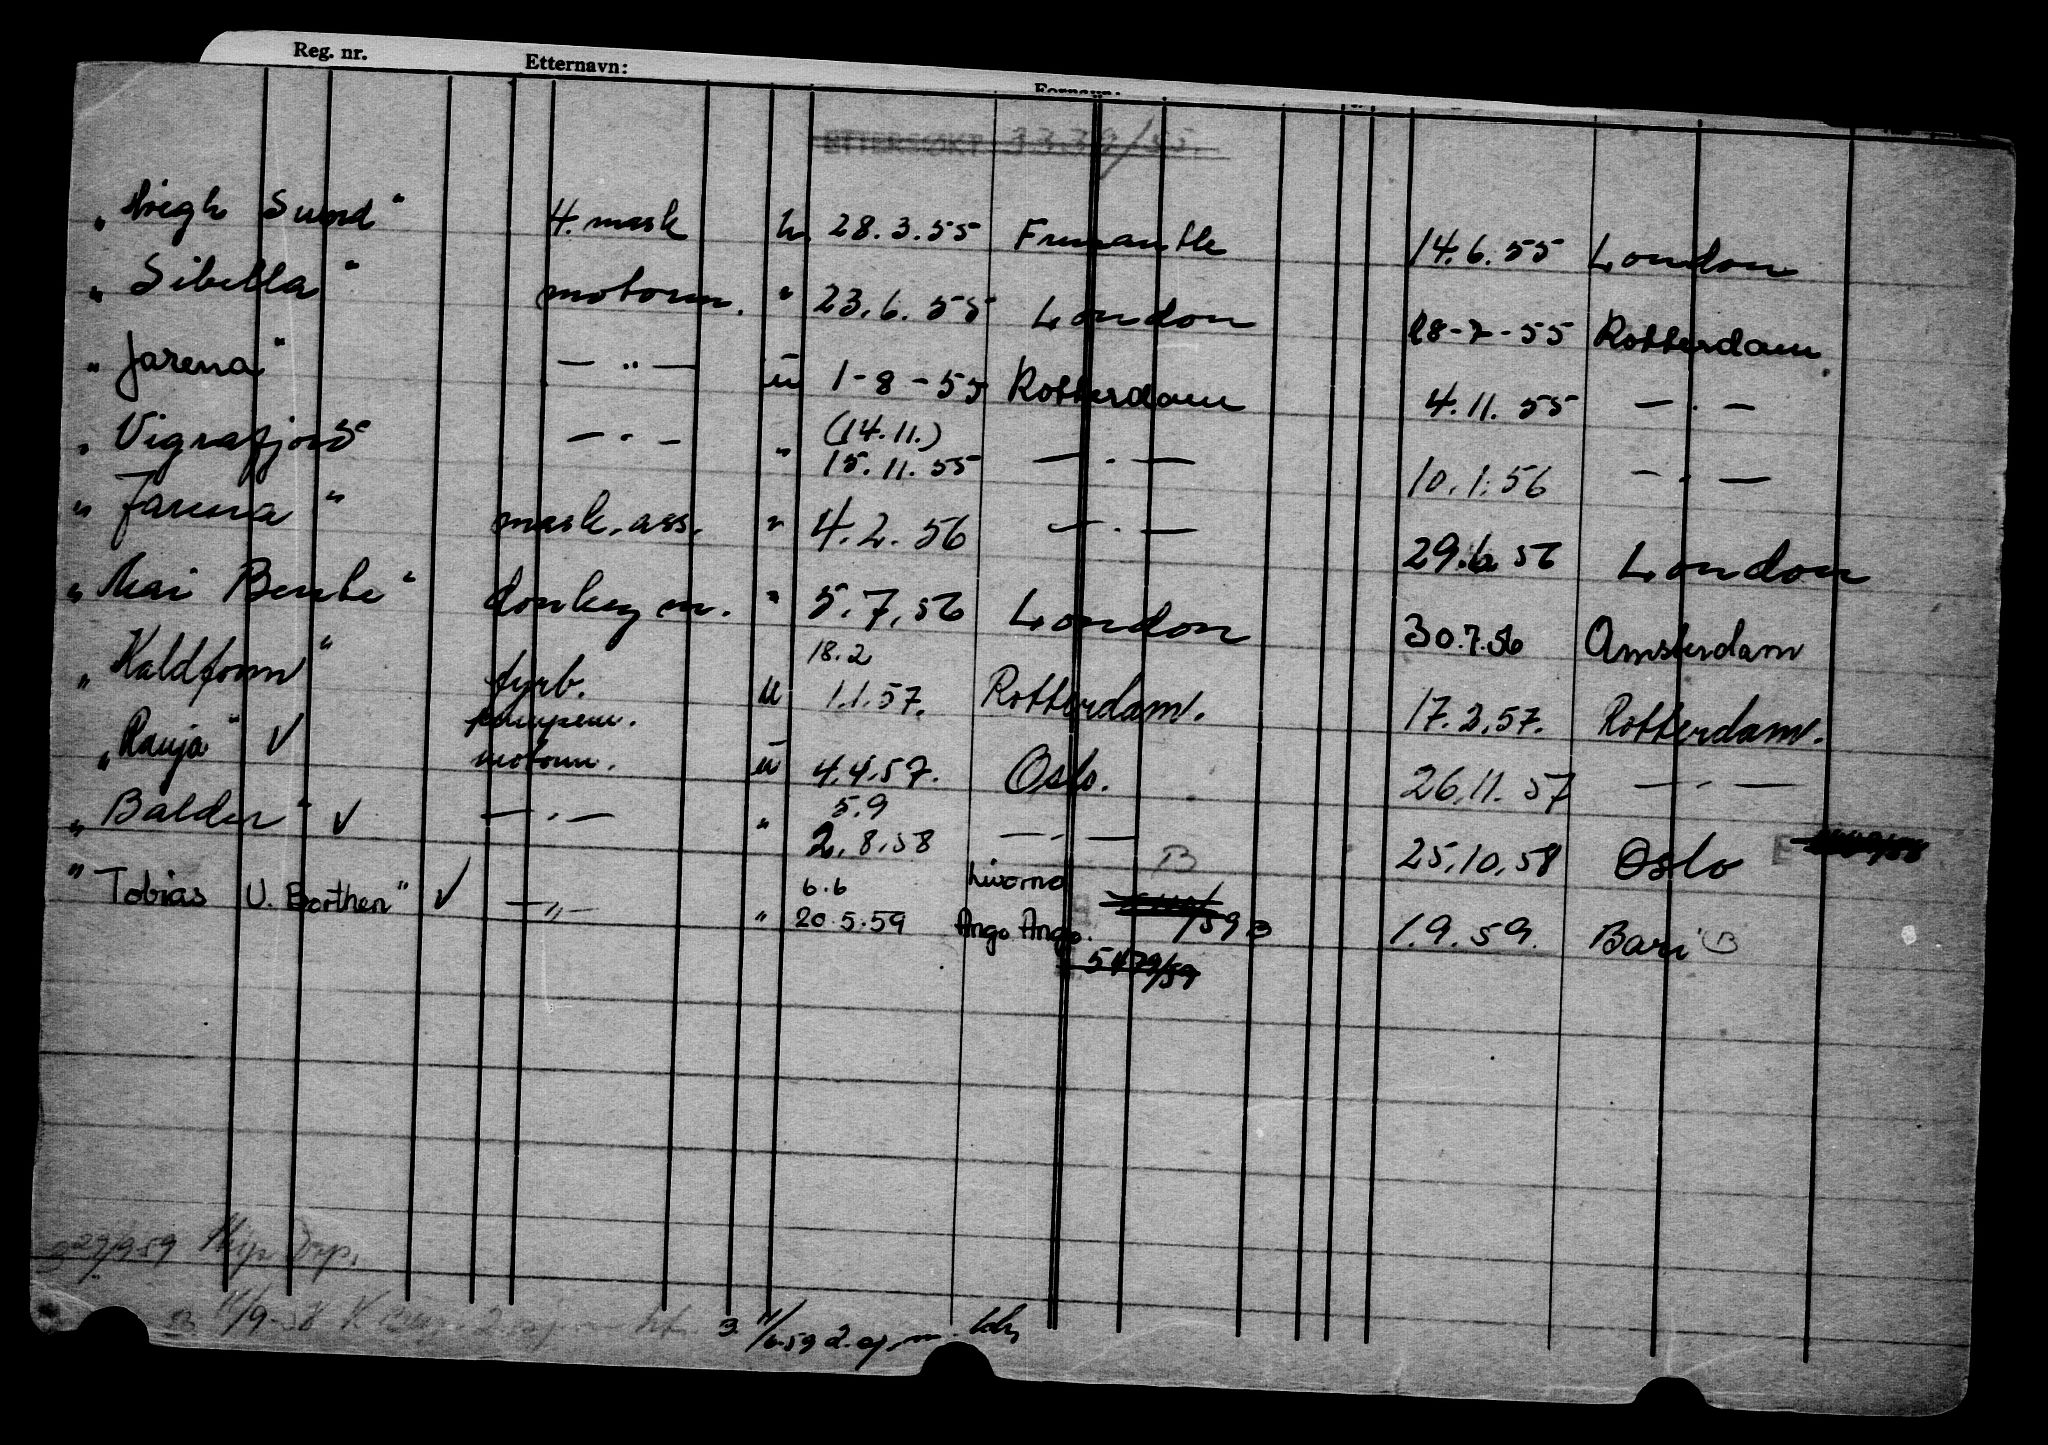 Reg. nr. Etternavn: Fornavn:
ETTERSØKT 3339/55.
„ Sund“ 4. mask h. 28.3.55 Fremantle 14.6.55 London
„Sibella“ motorm. " 23.6.55 London 28-7-55 Rotterdam
„Jarena“ — " — u 1-8-55 Rotterdam 4.11.55 — " —
„Vigrafjord — " — " (14.11.) 15.11.55 — " — 10.1.56 — " —
„Jarena“ mask.ass. " 4.2.56 — " — 29.6.56 London
„Mai Bente“ donkeym. " 5.7.56 London 30.7.56 Amsterdam
„Kaldfonn“ fyrb. u 18.2 1.1.57. Rotterdam. 17.2.57. Rotterdam.
„Ranja“ ✓ pumpem. motorm. u 4.4.57. Oslo. 26.11.57 — " —
„Balder“ ✓ — " — " 5.9 2.8.58 — " — B 25.10.58 Oslo E
"Tobias U. Borthen" ✓ — " — " 6.6 20.5.59 Livorno Ango Ango. /59 B 1.9.59. Bari B
5479/59